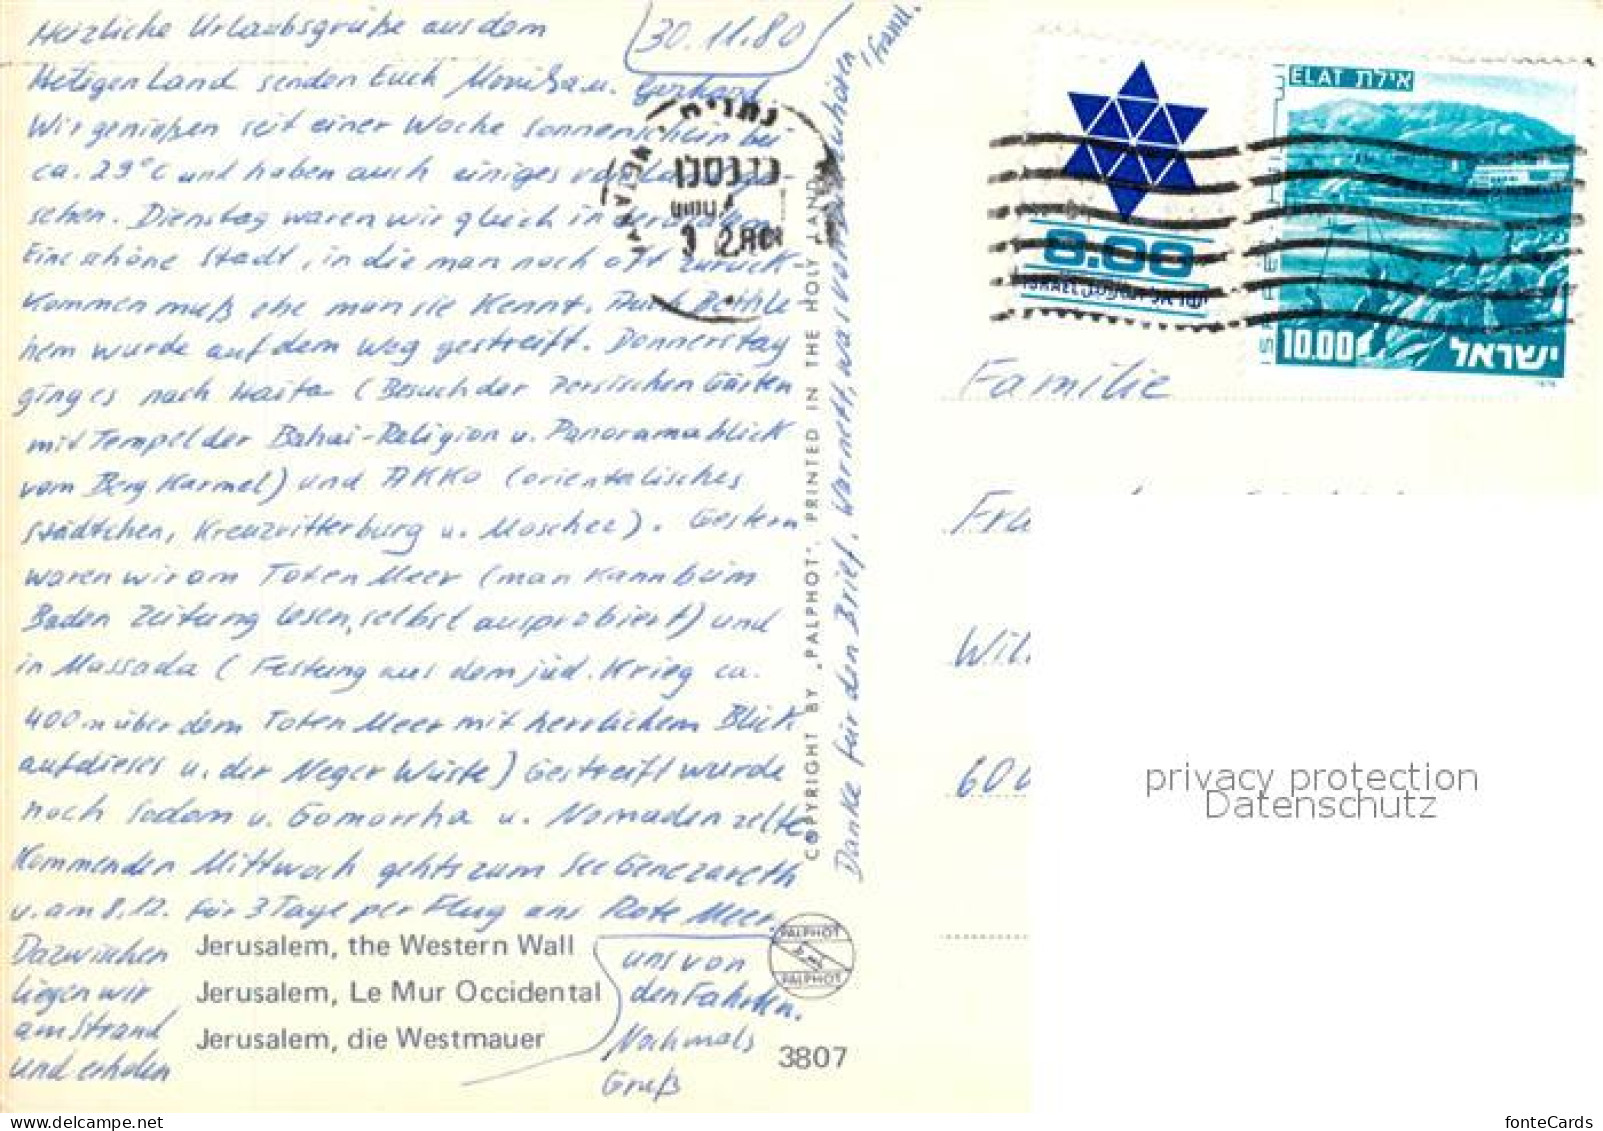 30.11.80
Herzliche Urlaubsgrüße aus dem
Heiligen Land senden Euch Monika u. Gerhard
Wir genießen seit einer Woche Sonnenschein bei
ca. 29°C und haben auch einiges vom Land ge-
sehen. Dienstag waren wir gleich in Jerusalem
Eine schöne Stadt, in die man noch oft zurück
kommen muß ehe man sie kennt. Auch Bethle
hem wurde auf dem Weg gestreift. Donnerstag
ging es nach Haifa (Besuch der Persischen Gärten
mit Tempel der Bahai-Religion u. Panoramablick
vom Berg Karmel) und AKKO (orientalisches
Städtchen, Kreuzritterburg u. Moschee). Gestern
waren wir am Toten Meer (man kann beim
Baden Zeitung lesen, selbst ausprobiert) und
in Massada (Festung aus dem jüd. Krieg ca.
400 m über dem Toten Meer mit herrlichem Blick
auf dieses u. der Negev Wüste) Gestreift wurde
noch Sodom u. Gomorrha u. Nomadenzelte
Kommenden Mittwoch gehts zum See Genezareth
u. am 8.12. für 3 Tage per Flug ans Rote Meer.
Dazwischen
liegen wir
am Strand
und erholen
uns von
den Fahrten.
Nochmals
Gruß
Jerusalem, the Western Wall
Jerusalem, Le Mur Occidental
Jerusalem, die Westmauer
3807
PALPHOT
PALPHOT
COPYRIGHT BY „PALPHOT“, PRINTED IN THE HOLY LAND
Danke für den Brief.
8.00
ISRAEL ישראל
ELAT אילת
10.00 ישראל
Familie
60
privacy protection
Datenschutz
fonteCards